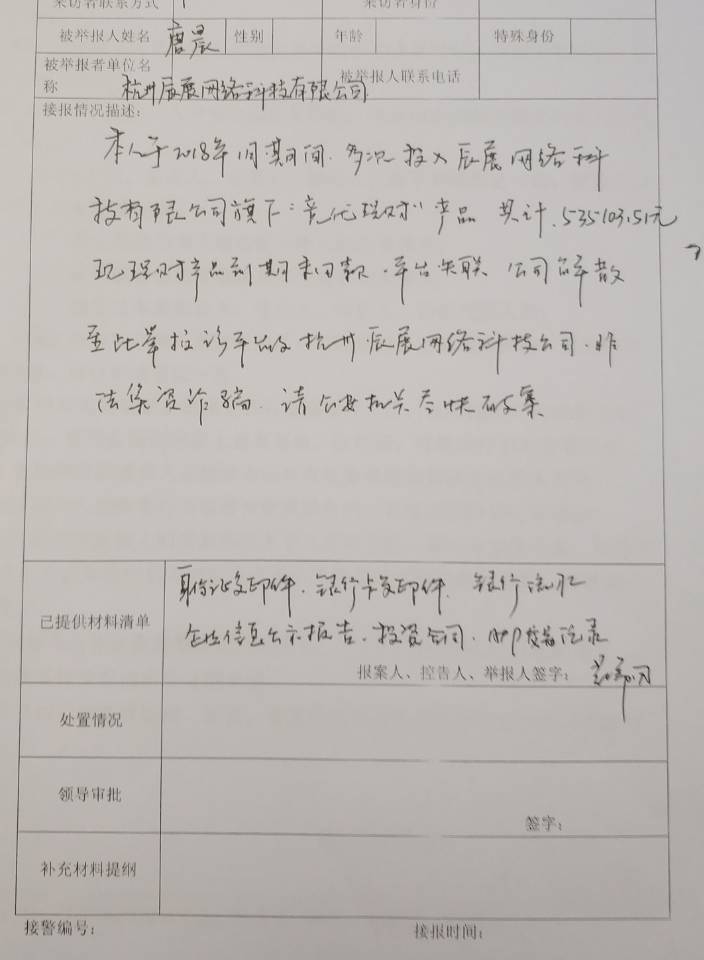 来访者联系方式 来访者身份
被举报人姓名 唐晨 性别 年龄 特殊身份
被举报者单位名称 杭州辰展网络科技有限公司 被举报人联系电话
接报情况描述:
本人于2018年间期间.多次投入辰展网络科
技有限公司旗下:竞优理财"产品 共计.535103.51元
现理财产品到期未回款.平台失联 公司解散
至此举报该平台及杭州辰展网络科技公司.非
法集资诈骗.请公安机关尽快破案
已提供材料清单
身份证复印件.银行卡复印件. 银行流水
企业信息公示报告.投资合同.APP投资记录
报案人、控告人、举报人签字:
处置情况
领导审批
签字:
补充材料提纲
接警编号: 接报时间: